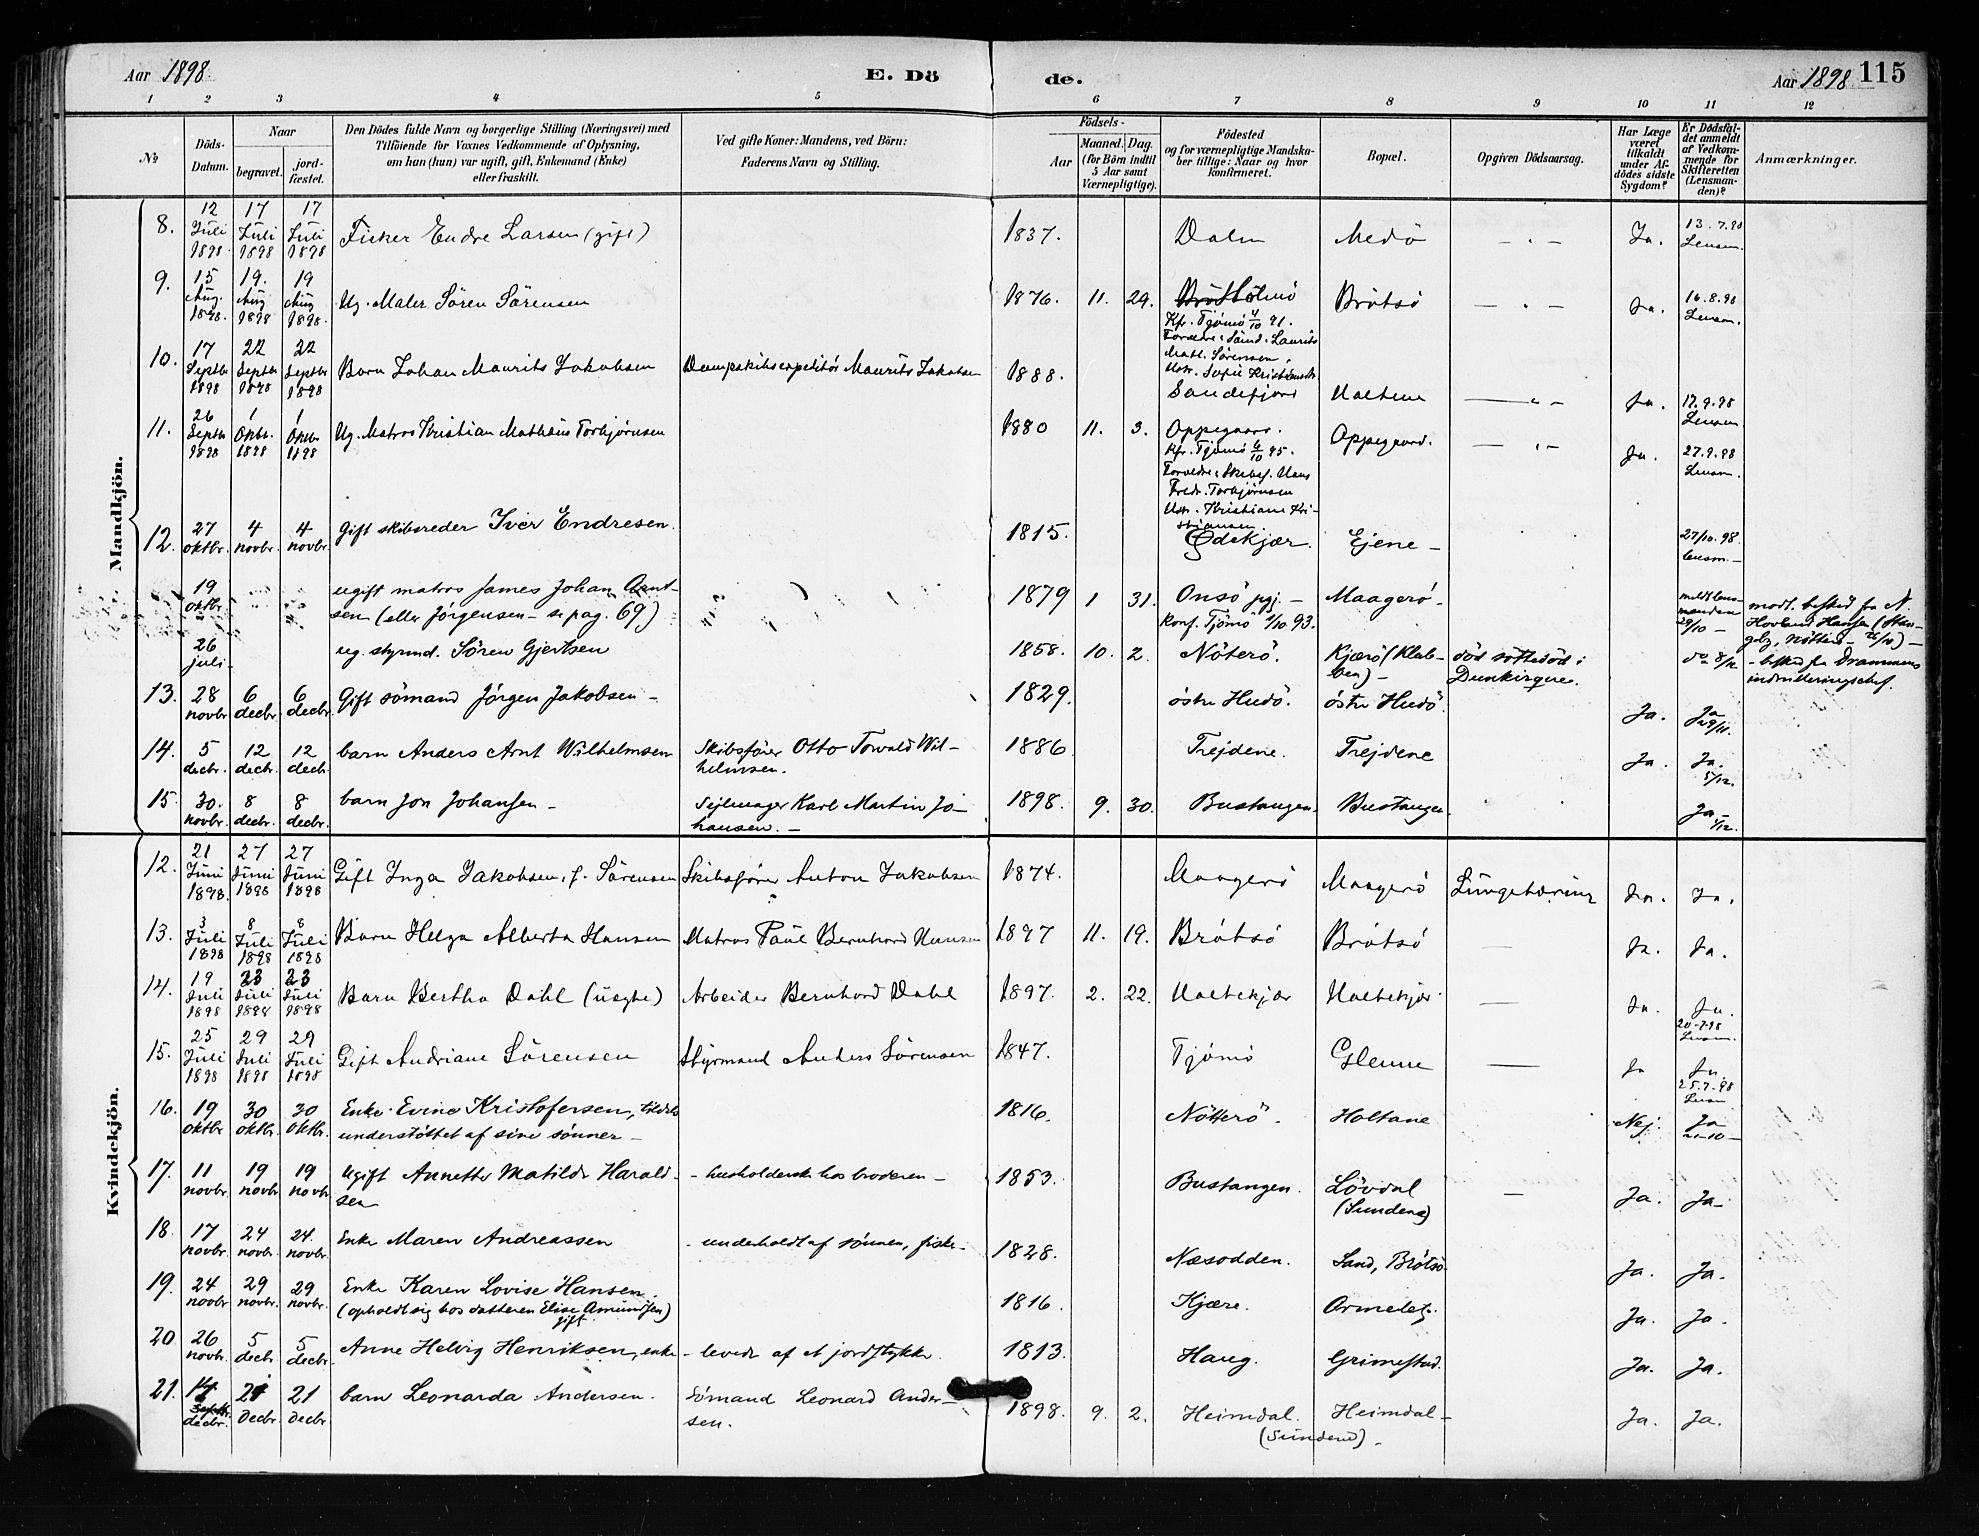 Aar 1898. E. Dö de. Aar 1898 115
1 2 3 4 5 6 7 8 9 10 11 12
№ Döds-Datum. Naar begravet. jord-fæstet.
Den Dödes fulde Navn og borgerlige Stilling (Næringsvei) med Tilföiende for Voxnes Vedkommende af Oplysning, om han (hun) var ugift, gift, Enkemand (Enke) eller fraskilt.
Ved gifte Koner: Mandens, ved Börn: Faderens Navn og Stilling.
Födsels- Aar Maaned. Dag. (for Börn indtil 5 Aar samt Værnepligtige).
Födested og for værnepligtige Mandskaber tillige: Naar og hvor konfirmeret.
Bopæl.
Opgiven Dödsaarsag.
Har Læge været tilkaldt under Afdödes sidste Sygdom?
Er Dödsfaldet anmeldt af Vedkommende for Skifteretten (Lensmanden)?
Anmærkninger.
Mandkjön.
8. 12 Juli 1898. 17 Juli 1898 17 Juli 1898 Fisker Endre Larsen (gift) 1837. Dalen Medö - " - Ja. 13.7.98 Lensm.
9. 15 Aug. 1898. 19. Aug 1898 19 Aug 1898. Ug. Maler Sören Sörensen 1876. 11. 29. Brötsö - " - Ja. 16.8.98 Lensm.
Kfr. Tjömö 4/10 91.
Forældre: Sömd. Laurits
Matl. Sörensen.
Ustr. Sofie Kristiansdtr
10. 17 Septbr 1898 22 Septbr 1898 22 Septbr 1898 Barn Johan Maurits Jakobsen Dampskibsexpeditör Maurits Jakobsen 1888. Sandefjord Ja. 17.9.98 Lensm
11. 26 Septbr 1898 1 Oktbr. 1898 1 Oktbr 1898 Ug. Matros Kristian Mathæus Torbjörnsen 1880 11. 3. Oppegaard. Oppegaard. - " - Ja. 27.9.98 Lensm.
Kfr. Tjömö 6/10 95.
Forældre: Skibsf. Hans
Fredr. Torbjörnsen
Ustr. Kristiane Kristiansen.
12. 27 oktbr. 4 novbr. 4 novbr. Gift skibsreder Iver Endresen. 1815. Ødekjær. Ejene - 27/10.98. lensm. -
19 oktbr. ugift matros James Johan Arntsen (eller Jörgensen - se pag. 69) 1879 1 31. Onsö pgj. - Maagerö. meldt lensmanden 29/10 -
konf. Tjömö 1/10 93.
modt. besked fra N. Hovland Hansen
26 juli - ug. styrmd. Sören Gjertsen 1858. 10. 2. Nöterö. Kjærö (Klubben) - död sottedöd i Dunkirque. do 8/12 - besked fra Drammens indrulleringschef.
13. 28 novbr 6 decbr. 6 decbr. Gift sömand Jörgen Jakobsen - 1829. östre Hudö. östre Hudö. Ja. Ja 29/11.
14. 5 decbr. 12 decbr. 12 decbr. barn Anders Arnt Wilhelmsen Skibsförer Otto Torvald Wilhelmsen. 1886. Trejdene. Trejdene Ja. Ja. 5/12.
15. 30. novbr. 8 decbr. 8 decbr. barn Jon Johansen - Sejlmager Karl Martin Johansen. - 1898. 9. 30. Bustangen. Bustangen. Ja - 1/12.
Kvindekjön.
12. 21 Juni 1898. 27 Juni 1898 27 Juni 1898 Gift Inga Jakobsen, f. Sörensen Skibsförer Anton Jakobsen 1874. Maagerö Maagerö Lungetæring Ja. Ja.
13. 3 Juli 1898 8 Juli 1898 8 Juli 1898 Barn Helga Alberta Hansen Matros Paul Bernhard Hansen 1897 11. 19. Brötsö Brötsö - Ja. Ja.
14. 19 Juli 1898 23 Juli 1898 23 Juli 1898 Barn Bertha Dahl (uægte) Arbeider Bernhard Dahl 1897. 2. 22. Holtekjær Holtekjær - Ja. Ja. 20-7-98 Lensm.
15. 25 Juli 1898 29 Juli 1898 29 Juli 1898 Gift Andriane Sörensen Styrmand Anders Sörensen 1847. Tjömö Glenne - Ja Ja. 25.7.98 Lensm
16. 19 oktbr 30 oktbr. 30 oktbr. Enke Evine Kristofersen, tildels understöttet af sine sönner - 1816. Nötterö. Holtane Nej. Ja 21-10-
17. 11 novbr. 19 novbr. 19 novbr. Ugift Annette Matilde Haraldsen - husholderske hos broderen - 1853. Bustangen. Lövdal (Sundene) - Ja. Ja -
18. 17 novbr. 24 novbr. 24. novbr. Enke Maren Andreassen - underholdt af sönnen, fisker - 1828. Næsodden. Sand, Brötsö. Ja. Ja.
19. 24 novbr 29 novbr. 29 novbr. Enke Karen Lovise Hansen. (opholdt sig hos datteren Elise Amundsen) gift 1816. Kjære. Ormelet. Ja. Ja.
20 26 novbr. 5 decbr. 5 decbr. Anne Helvig Henriksen, enke - levede af et jordstykke. 1813. Haug. Grimestad. Ja. Ja.
21. decbr. 21 decbr 21 decbr barn Leonarda Andersen. Sömand Leonard Andersen. 1898. 9. 2. Heimdal. Heimdal - (Sundene). Ja. Ja.